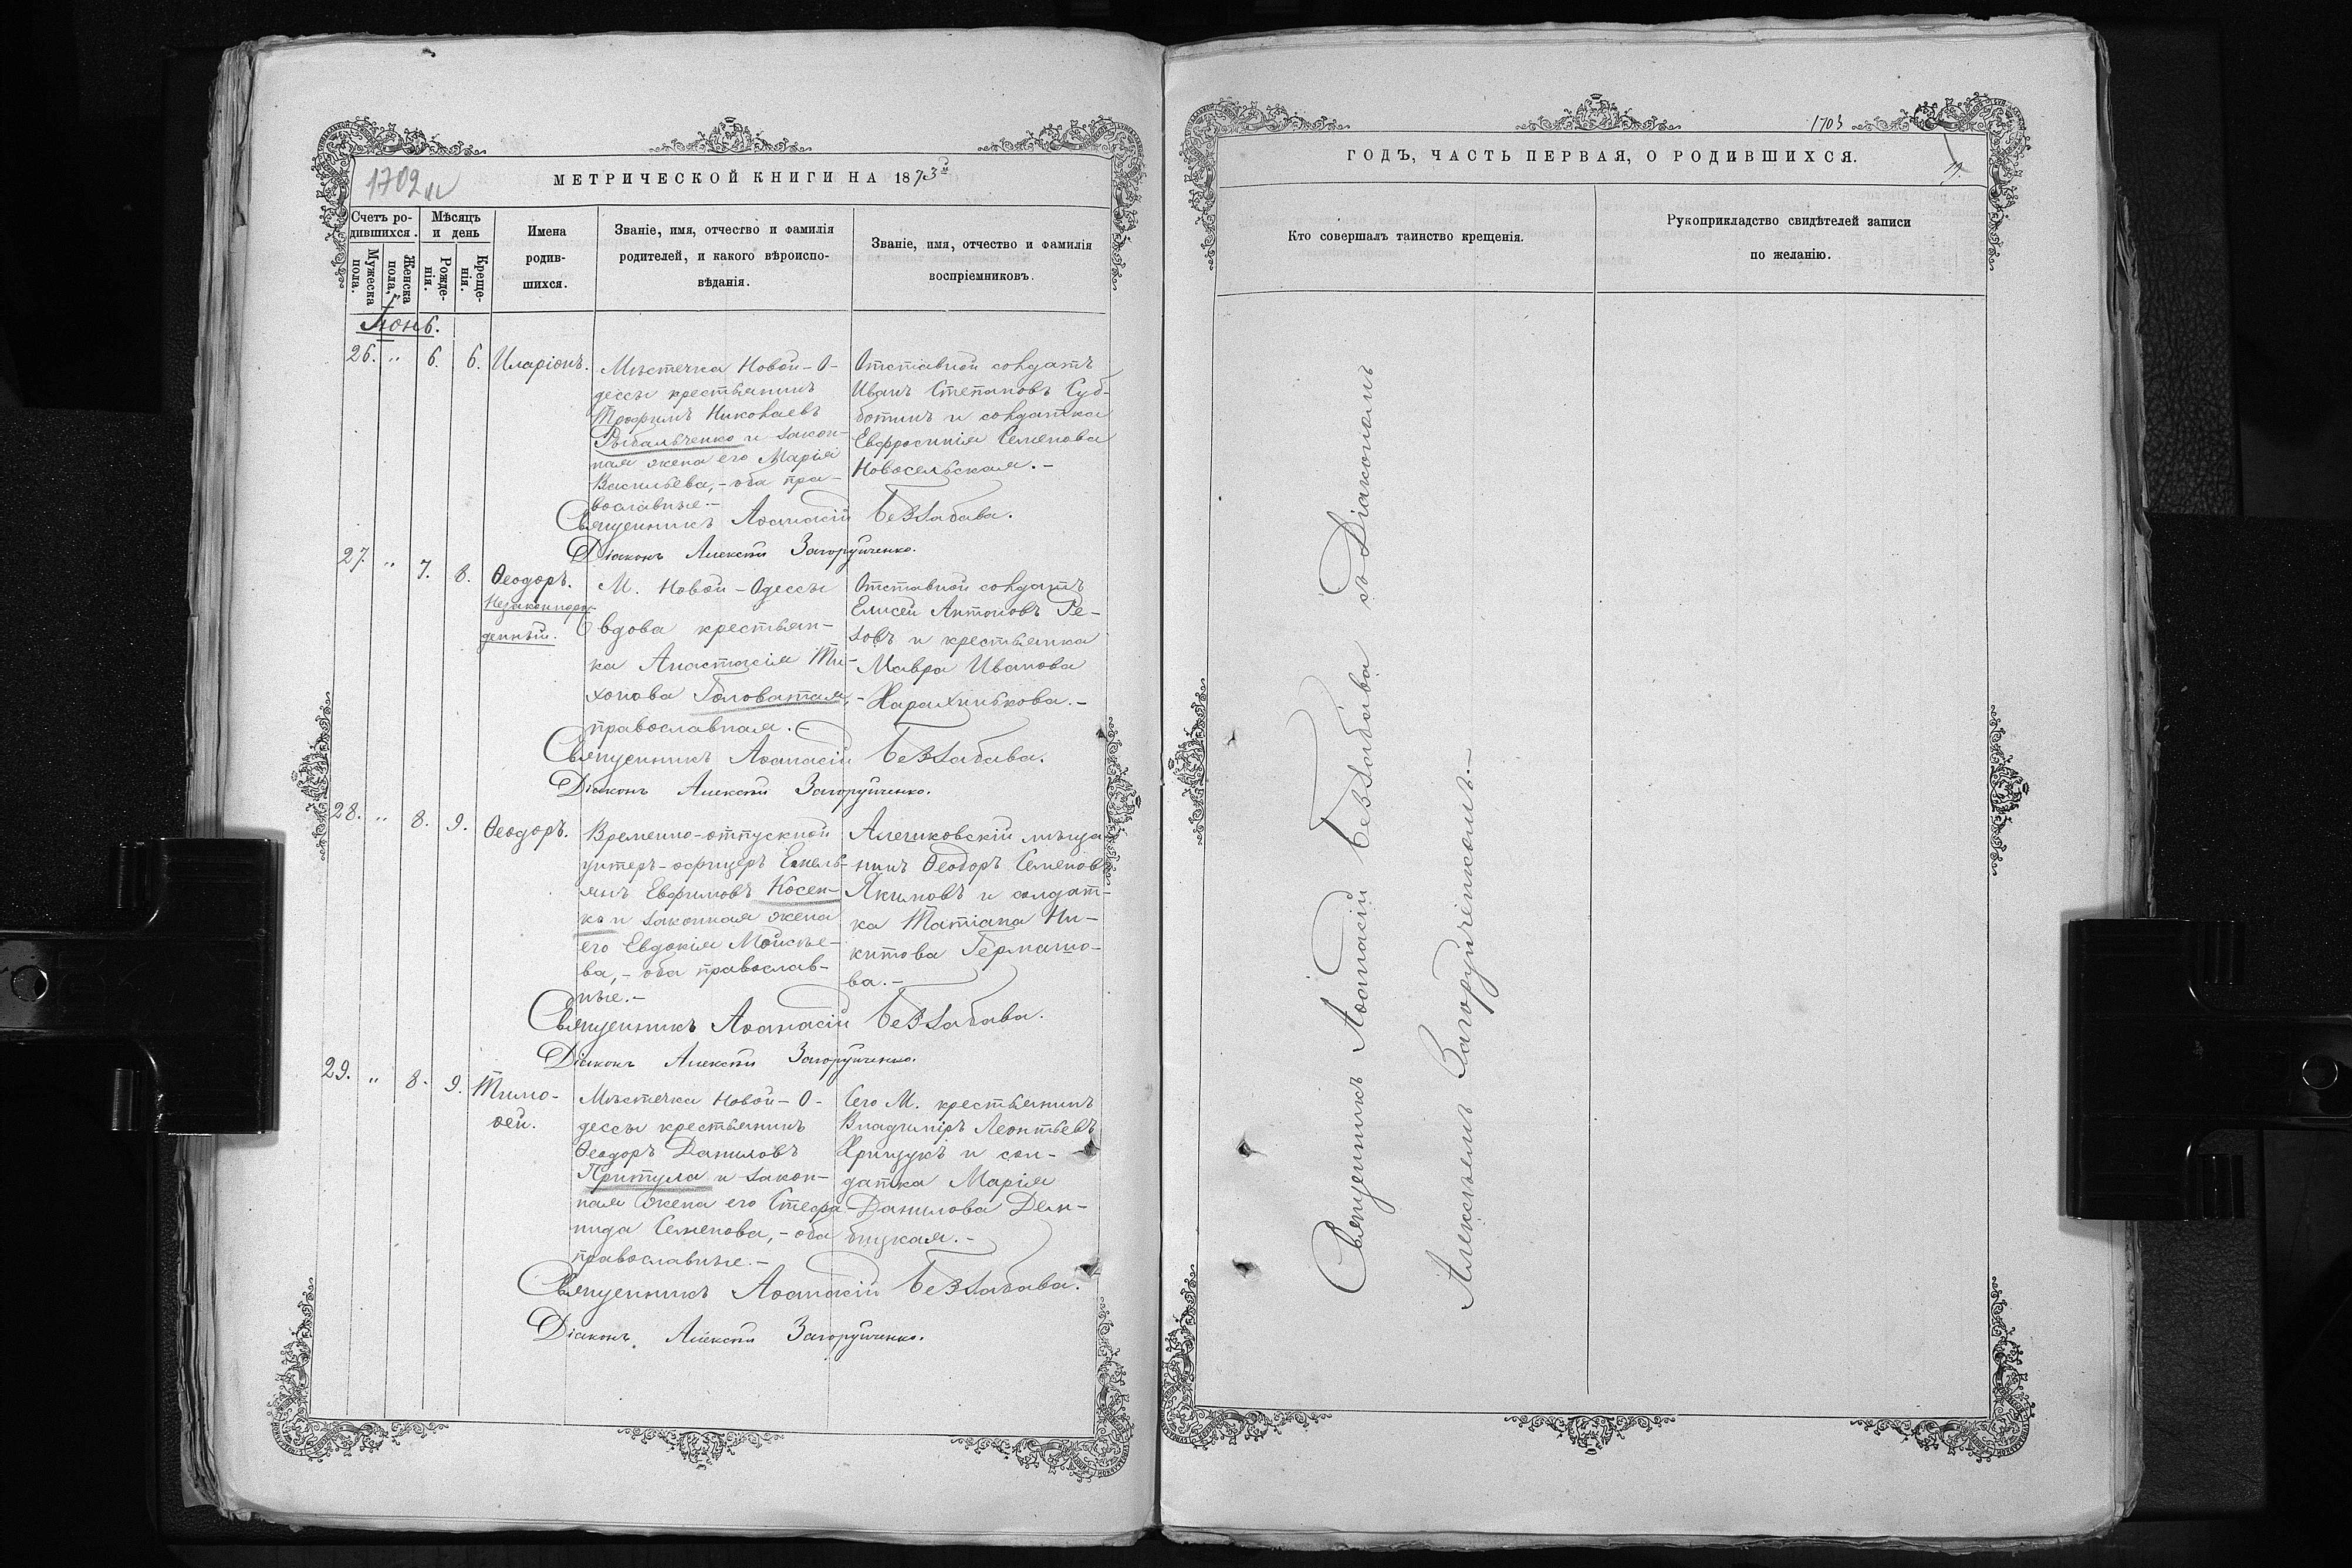 1702 и
МЕТРИЧЕСКОЙ КНИГИ НА 1873й
Счетъ ро-
дившихся.
Мѣсяцъ
и день
Мужеска
пола.
Женска
пола.
Рожде-
нія.
Креще-
нія.
Имена
родив-
шихся.
Званіе, имя, отчество и фамилія
родителей, и какого вѣроиспо-
вѣданія.
Званіе, имя, отчество и фамилія
воспріемниковъ.
Іюнь.
26. " 6. 6. Иларіонъ.
Мѣстечка Новой-О-
дессы крестьянинъ
Трофимъ Николаевъ
Рыбальченко и закон-
ная жена его Марія
Васильева, - оба пра-
вославные. -
Отставной солдатъ
Иванъ Степановъ Суб-
ботинъ и солдатка
Евфросинія Семенова
Новосельская. -
Священникъ Аѳанасій Беззабава.
Діаконъ Алексѣй Загоруйченко.
27. " 7. 8. Ѳеодоръ.
Незаконнорож-
денный.
М. Новой-Одессы
вдова крестьян-
ка Анастасія Ти-
хонова Головатая, -
православная. -
Отставной солдатъ
Елисей Антоновъ Ре-
зовъ и крестьянка
Мавра Иванова
Харахинькова. -
Священникъ Аѳанасій Беззабава.
Діаконъ Алексѣй Загоруйченко.
28. " 8. 9. Ѳеодоръ.
Временно-отпускной
унтеръ-офицеръ Емель-
янъ Евфимовъ Косен-
ко и законная жена
его Евдокія Моисѣе-
ва, - оба православ-
ные. -
Алешковскій мѣща-
нинъ Ѳеодоръ Семеновъ
Якимовъ и солдат-
ка Татіана Ни-
китова Гермашо-
ва. -
Священникъ Аѳанасій Беззабава.
Діаконъ Алексѣй Загоруйченко.
29. " 8. 9. Тимо-
ѳей.
Мѣстечка Новой-О-
дессы крестьянинъ
Ѳеодоръ Даниловъ
Притула и закон-
ная жена его Стефа-
нида Семенова, - оба
православные. -
Сего М. крестьянинъ
Владиміръ Леонтьевъ
Хрищукъ и сол-
датка Марія
Данилова Дем-
бицкая. -
Священникъ Аѳанасій Беззабава.
Діаконъ Алексѣй Загоруйченко.
1703
ГОДЪ, ЧАСТЬ ПЕРВАЯ, О РОДИВШИХСЯ.
Кто совершалъ таинство крещенія.
Рукоприкладство свидѣтелей записи
по желанію.
Священникъ Аѳанасій Беззабава съ Діакономъ
Алексѣемъ Загоруйченкомъ. -